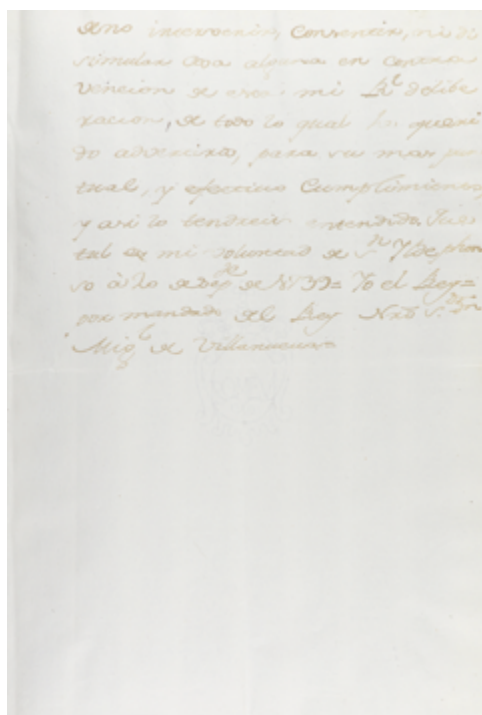 de no innovacion, Consentir, ni di
simular cosa alguna en contra
vencion de esta mi Rl delibe
racion, de todo lo qual he queri
do advertiros, para su mas pun
tual, y efectivo Cumplimiento,
y asi lo tendreis entendido. Que
tal es mi voluntad de Sn Yldephon
so à 20 de de 1739= Yo el Rey=
por mandado del Rey Nro Sr. Dn
Migl de Villanueva